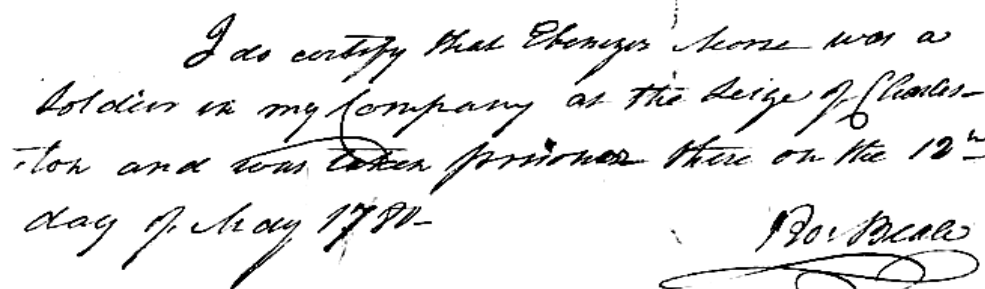 I do certify that Ebenezer was a
Soldier in my Company at the Seige of Charles-
ton and was taken prisoner there on the 12th
day of May 1780-
Ro. Beale